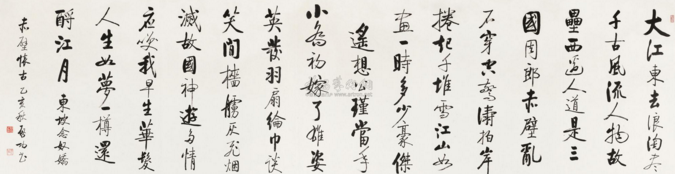 大江東去浪淘尽
千古風流人物故
壘西邊人道是三
國周郎赤壁亂
石穿空驚濤拍岸
捲起千堆雪江山如
畫一時多少豪傑
遙想公瑾當年
小喬初嫁了雄姿
英發羽扇綸巾談
笑間檣艣灰飛烟
滅故國神遊多情
應笑我早生華髮
人生如夢一樽還
酹江月 東坡念奴嬌
赤壁懷古 乙亥秋